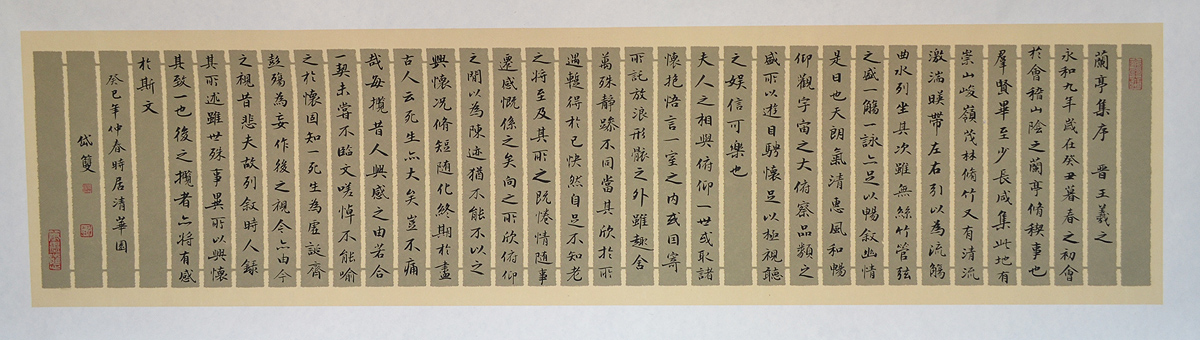 蘭亭集序 晉王羲之
永和九年歲在癸丑暮春之初會
於會稽山陰之蘭亭脩稧事也
羣賢畢至少長咸集此地有
崇山峻嶺茂林脩竹又有清流
激湍暎帶左右引以為流觴
曲水列坐其次雖無絲竹管弦
之盛一觴一詠亦足以暢敘幽情
是日也天朗氣清惠風和暢
仰觀宇宙之大俯察品類之
盛所以遊目騁懷足以極視聽
之娛信可樂也
夫人之相與俯仰一世或取諸
懷抱悟言一室之内或因寄
所託放浪形骸之外雖趣舍
萬殊靜躁不同當其欣於所
遇蹔得於己快然自足不知老
之將至及其所之既惓情隨事
遷感慨係之矣向之所欣俯仰
之間以為陳迹猶不能不以之
興懷况脩短隨化終期於盡
古人云死生亦大矣豈不痛
哉每攬昔人興感之由若合
一契未嘗不臨文嗟悼不能喻
之於懷固知一死生為虛誕齊
彭殤為妄作後之視今亦由今
之視昔悲夫故列敘時人錄
其所述雖世殊事異所以興懷
其致一也後之攬者亦將有感
於斯文
癸巳年仲春時居清華園
岱雙